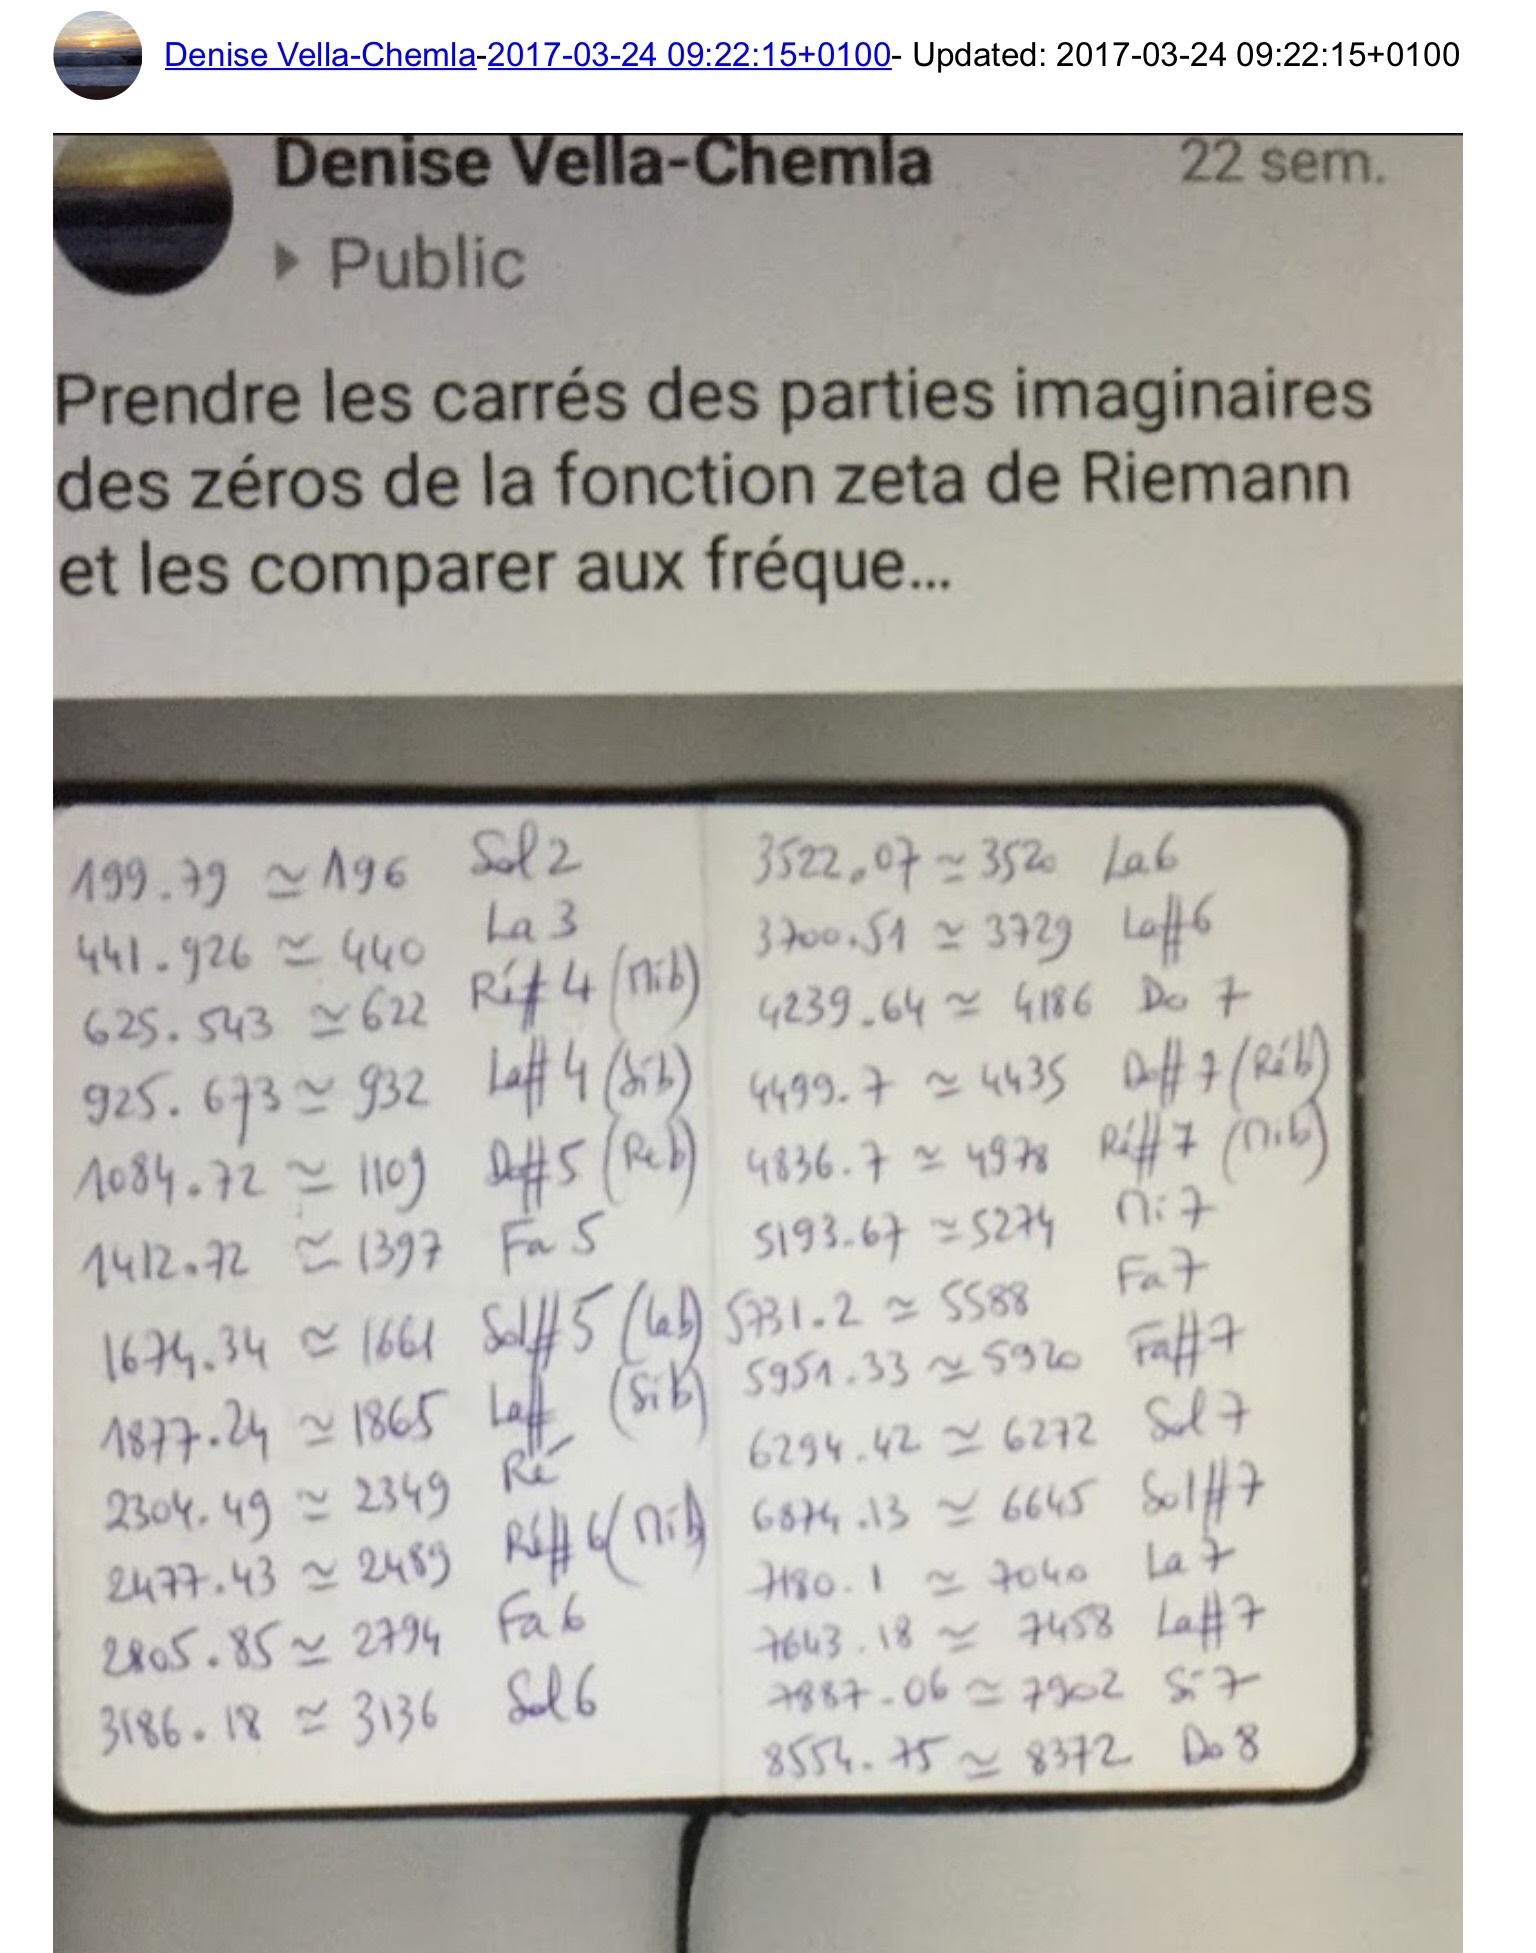 Denise Vella-Chemla-2017-03-24 09:22:15+0100- Updated: 2017-03-24 09:22:15+0100
Denise Vella-Chemla 22 sem.
▸ Public
Prendre les carrés des parties imaginaires
des zéros de la fonction zeta de Riemann
et les comparer aux fréque...
199.79 ≃ 196 Sol 2
441.926 ≃ 440 La 3
625.543 ≃ 622 Ré# 4 (Mib)
925.673 ≃ 932 La# 4 (Sib)
1084.72 ≃ 1109 Do# 5 (Réb)
1412.72 ≃ 1397 Fa 5
1674.34 ≃ 1661 Sol# 5 (Lab)
1877.24 ≃ 1865 La# (Sib)
2304.49 ≃ 2349 Ré
2477.43 ≃ 2489 Ré# 6 (Mib)
2805.85 ≃ 2794 Fa 6
3186.18 ≃ 3136 Sol 6
3522.07 ≃ 3520 La 6
3700.51 ≃ 3729 La# 6
4239.64 ≃ 4186 Do 7
4499.7 ≃ 4435 Do# 7 (Réb)
4836.7 ≃ 4978 Ré# 7 (Mib)
5193.67 ≃ 5274 Mi 7
5731.2 ≃ 5588 Fa 7
5951.33 ≃ 5920 Fa# 7
6294.42 ≃ 6272 Sol 7
6874.13 ≃ 6645 Sol# 7
7180.1 ≃ 7040 La 7
7643.18 ≃ 7458 La# 7
7887.06 ≃ 7902 Si 7
8554.75 ≃ 8372 Do 8